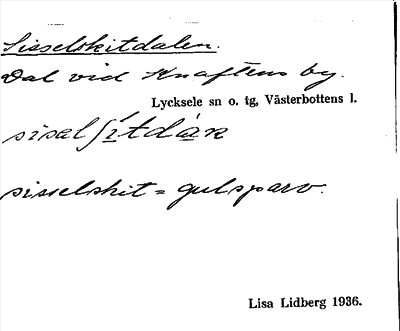 Sisselskitdalen.
Dal vid Knaftens by.
Lycksele sn o. tg, Västerbottens l.
sisalʃítdàn
sisselskit = gulsparv.
Lisa Lidberg 1936.